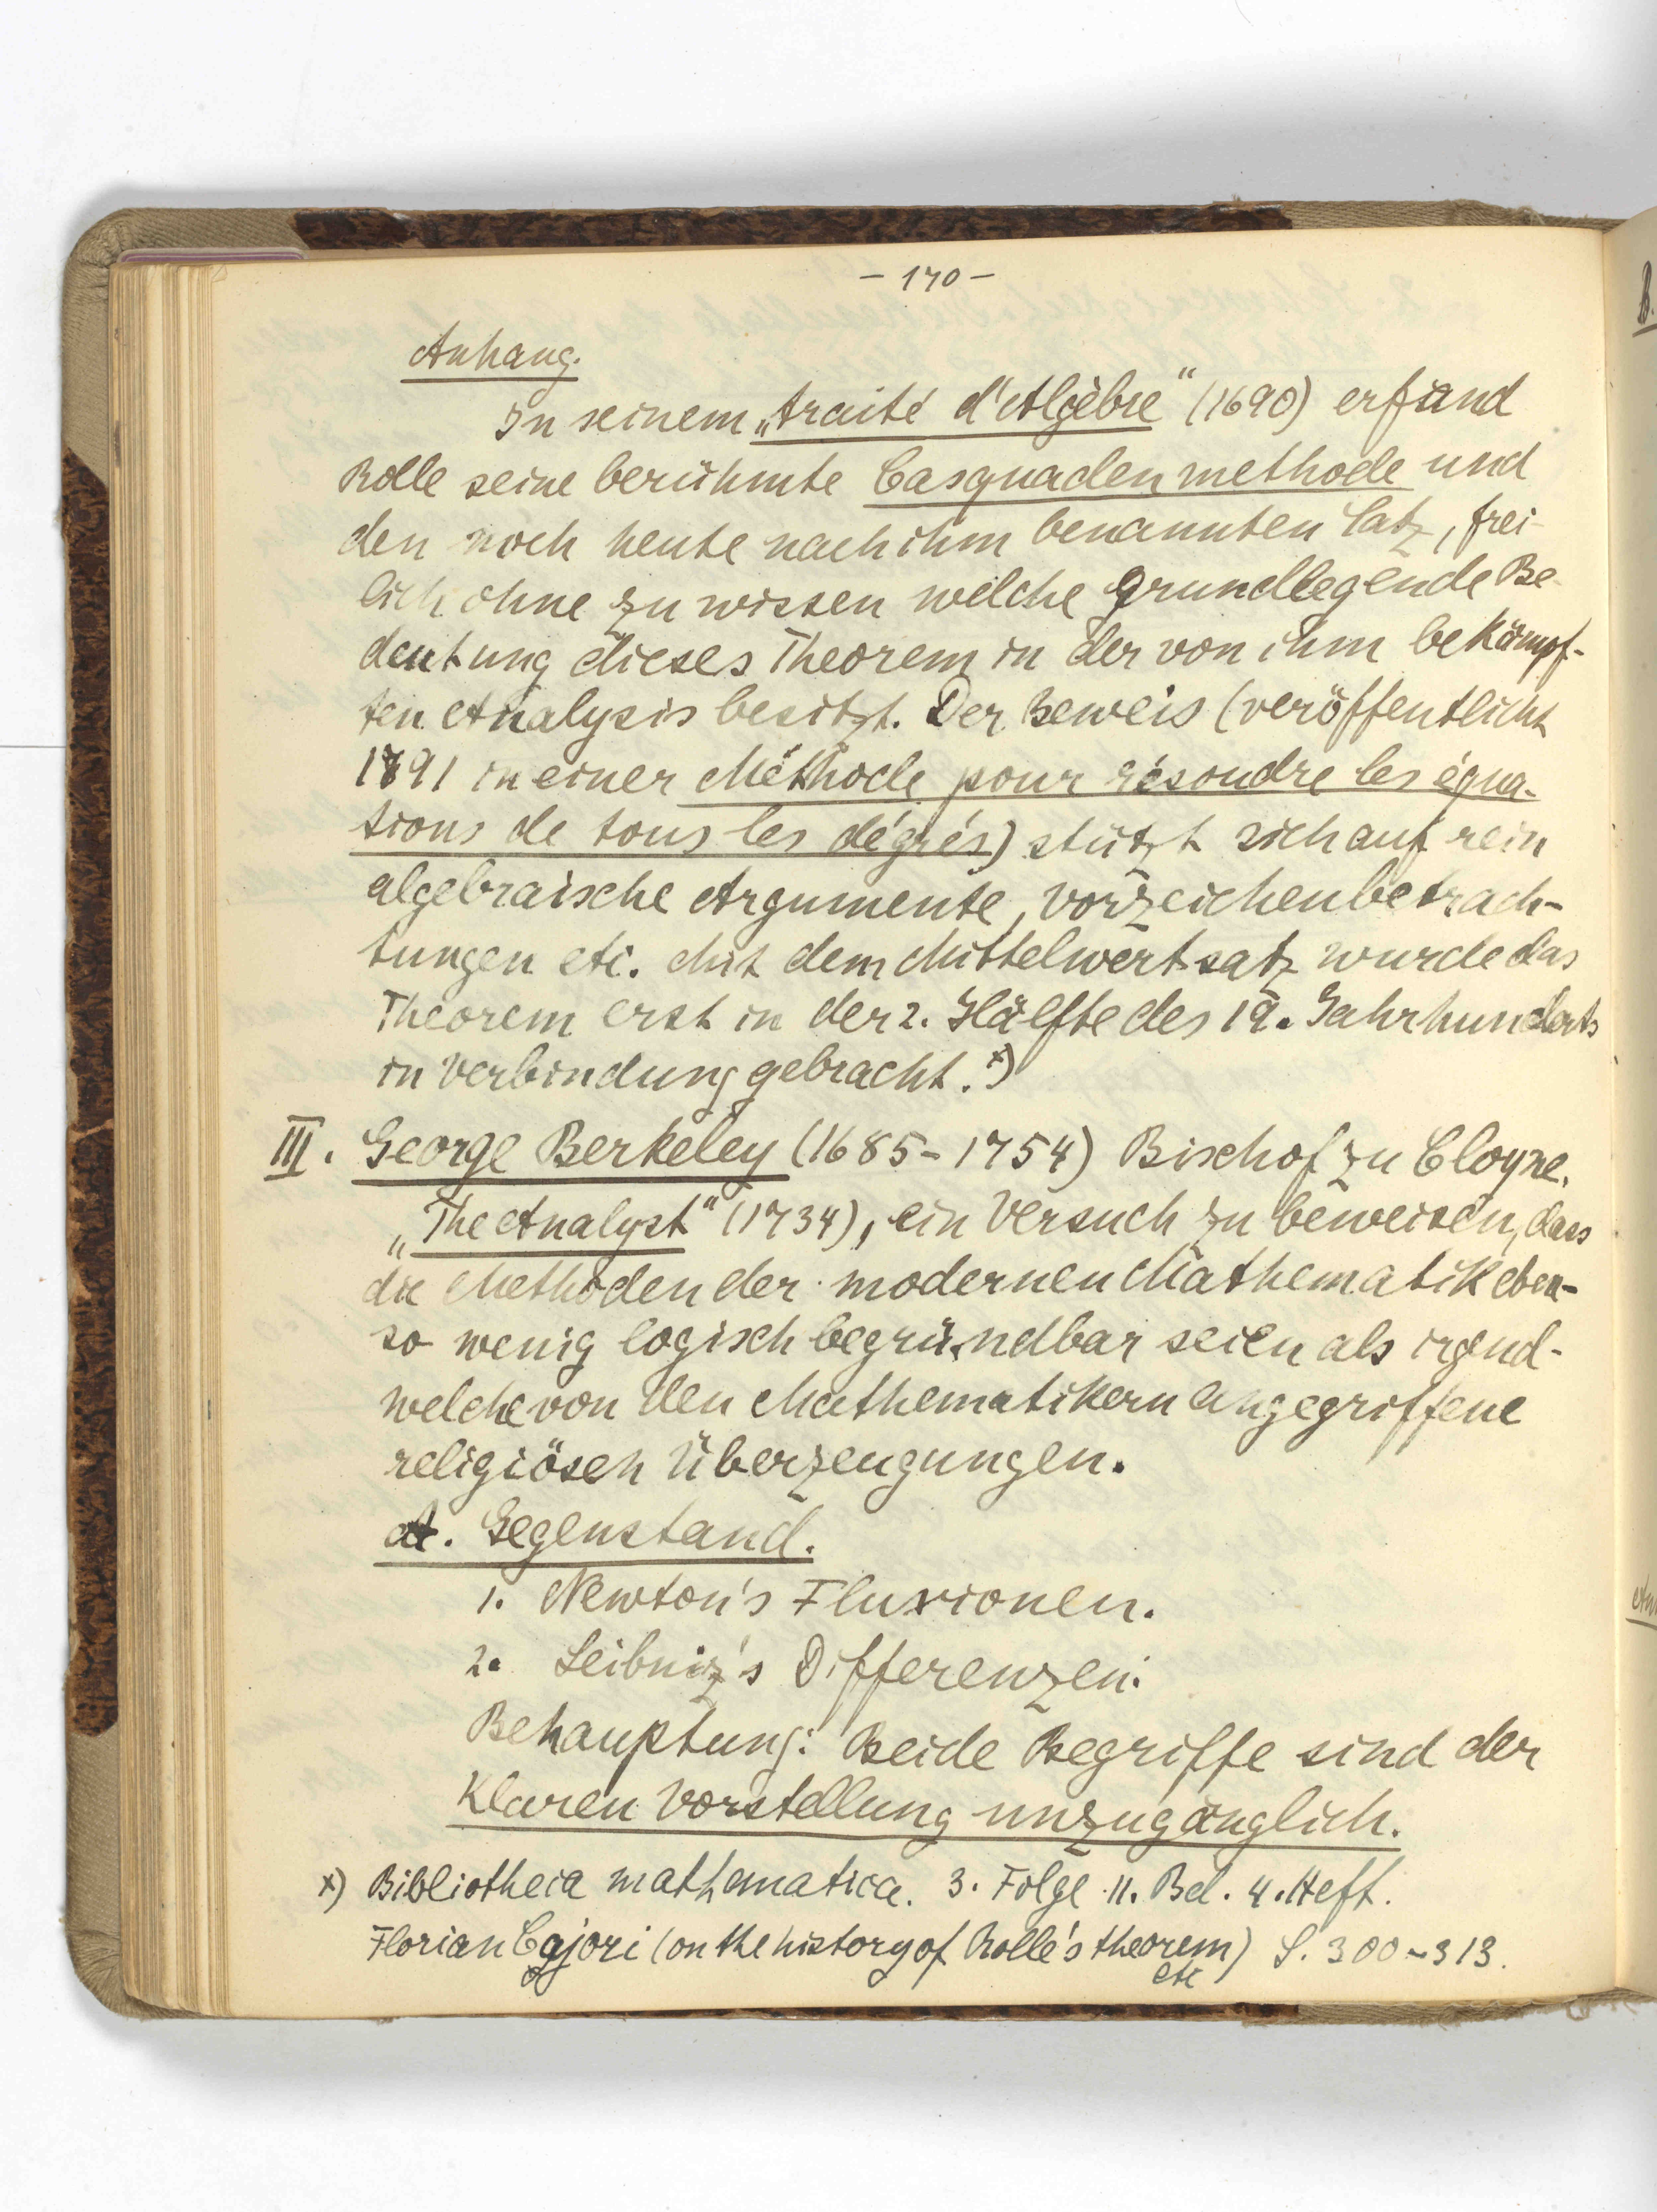 – 170 –
Anhang.
In seinem „traité d'Algèbre“ (1690) erfand
Rolle seine berühmte Casquadenmethode und
den noch heute nach ihm benannten Satz, frei-
lich ohne zu wissen welche grundlegende Be-
deutung dieses Theorem in der von ihm bekämpf-
ten Analysis besitzt. Der Beweis (veröffentlicht
1691 in einer Méthode pour résoudre les équa-
tions de tous les dégrés) stützt sich auf rein
algebraische Argumente, Vorzeichenbetrach-
tungen etc. Mit dem Mittelwertsatz wurde das
Theorem erst in der 2. Hälfte des 19. Jahrhunderts
in Verbindung gebracht. x)
III. George Berkeley (1685-1754) Bischof zu Cloyne.
„The Analyst“ (1734), ein Versuch zu beweisen, dass
die Methoden der modernen Mathematik eben-
so wenig logisch begründbar seien als irgend-
welche von den Mathematikern angegriffene
religiösen Überzeugungen.
A. Gegenstand.
1. Newton's Fluxionen.
2. Leibniz's Differenzen.
Behauptung: Beide Begriffe sind der
Klaren Vorstellung unzugänglich.
x) Bibliotheca mathematica. 3. Folge 11. Bd. 4. Heft.
Florian Cajori (on the history of Rolle's theorem) S. 300-313.
etc
B.